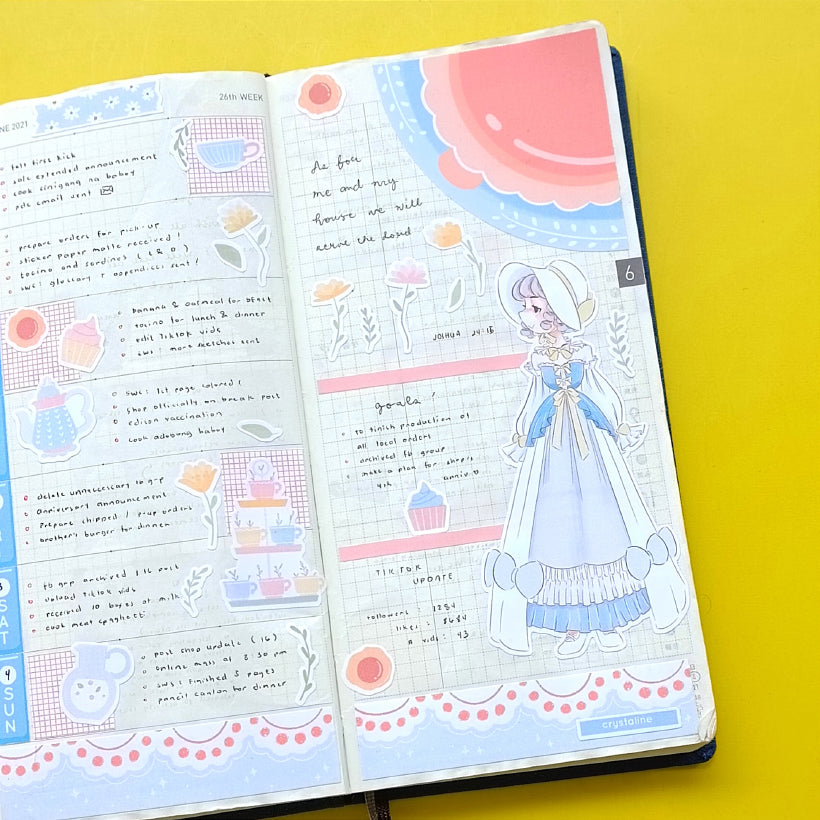 NE 2021
26th WEEK
felt first kick
sale extended announcement
cook sinigang na baboy
email sent
prepare orders for pick-up
sticker paper matte received!
tocino and sardines (L & D)
sws: glossary & appendices sent!
banana & oatmeal for bfast
tocino for lunch & dinner
edit Tiktok vids
sws: more sketches sent
sws: 1st page colored!
shop officially on break post
edison vaccination
cook adobong baboy
delete unnecessary tg gcp
anniversary announcement
prepare shipped / p-up orders
brother's burger for dinner
fb grp archived / IG post
upload tiktok vids
received 10 boxes of milk
cook meat spaghetti
SAT
post shop update (IG)
online mass at 8:30 pm
sws: finished 3 pages
pancit canton for dinner
4
SUN
As for
me and my
house we will
serve the Lord
JOSHUA 24:15
6
goals!
to finish production of
all local orders
archived fb group
make a plan for shop's
4th anniv.
TIKTOK
UPDATE
followers: 1284
likes: 8684
# vids: 43
crystaline